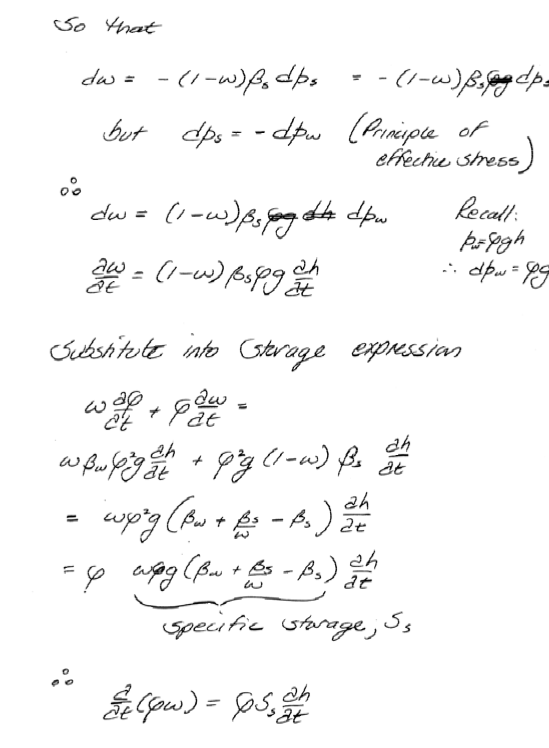 So that
dω = - (1-ω)βₛ dpₛ = - (1-ω)βₛ dpₛ
but dpₛ = - dp_w (Principle of
effective stress)
∴
dω = (1-ω)βₛ dp_w Recall:
p_w=ρgh
∂ω/∂t = (1-ω) βₛρg ∂h/∂t ∴ dp_w = ρg
Substitute into storage expression
ω ∂ρ/∂t + ρ ∂ω/∂t =
ω β_w ρ²g ∂h/∂t + ρ²g (1-ω) βₛ ∂h/∂t
= ωρ²g (β_w + βₛ/ω - βₛ) ∂h/∂t
= ρ ωρg (β_w + βₛ/ω - βₛ) ∂h/∂t
specific storage, Sₛ
∴
∂/∂t (ρω) = ρSₛ ∂h/∂t